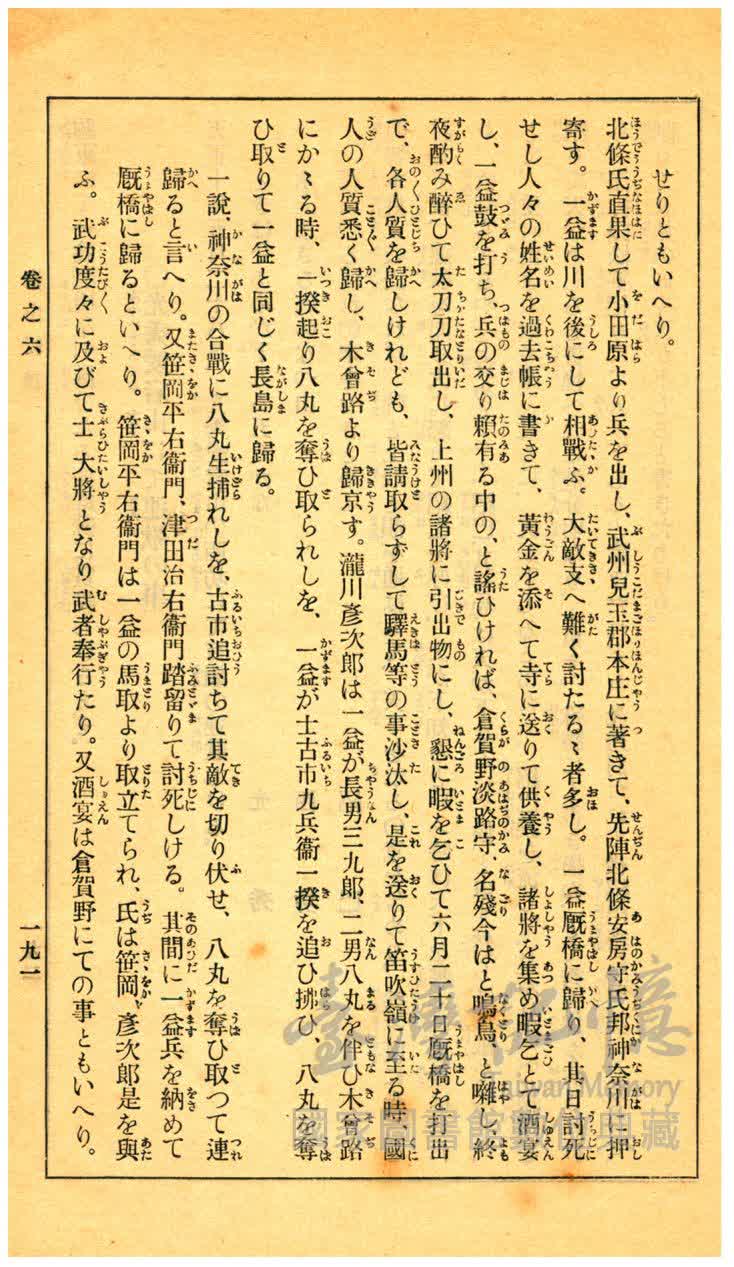 せりともいへり。
北條氏直果して小田原より兵を出し、武州兒玉郡本庄に著きて、先陣北條安房守氏邦神奈川に押
寄す。一益は川を後にして相戰ふ。大敵支へ難く討たるゝ者多し。一益厩橋に歸り、其日討死
せし人々の姓名を過去帳に書きて、黃金を添へて寺に送りて供養し、諸將を集め暇乞とて酒宴
し、一益鼓を打ち、兵の交り賴有る中の、と謠ひければ、倉賀野淡路守、名殘今はと鳴鳥、と囃し、終
夜酌み醉ひて太刀刀取出し、上州の諸將に引出物にし、懇に暇を乞ひて六月二十日厩橋を打出
で、各人質を歸しけれども、皆請取らずして驛馬等の事沙汰し、是を送りて笛吹嶺に至る時、國
人の人質悉く歸し、木曾路より歸京す。瀧川彥次郎は一益が長男三九郎、二男八丸を伴ひ木曾路
にかゝる時、一揆起り八丸を奪ひ取られしを、一益が士古市九兵衞一揆を追ひ拂ひ、八丸を奪
ひ取りて一益と同じく長島に歸る。
一說、神奈川の合戰に八丸生捕れしを、古市追討ちて其敵を切り伏せ、八丸を奪ひ取つて連
歸ると言へり。又笹岡平右衞門、津田治右衞門踏留りて討死しける。其間に一益兵を納めて
厩橋に歸るといへり。笹岡平右衞門は一益の馬取より取立てられ、氏は笹岡、彥次郎是を與
ふ。武功度々に及びて士大將となり武者奉行たり。又酒宴は倉賀野にての事ともいへり。
卷之六
一九一
臺灣記憶
Taiwan Memory
國家圖書館數位典藏